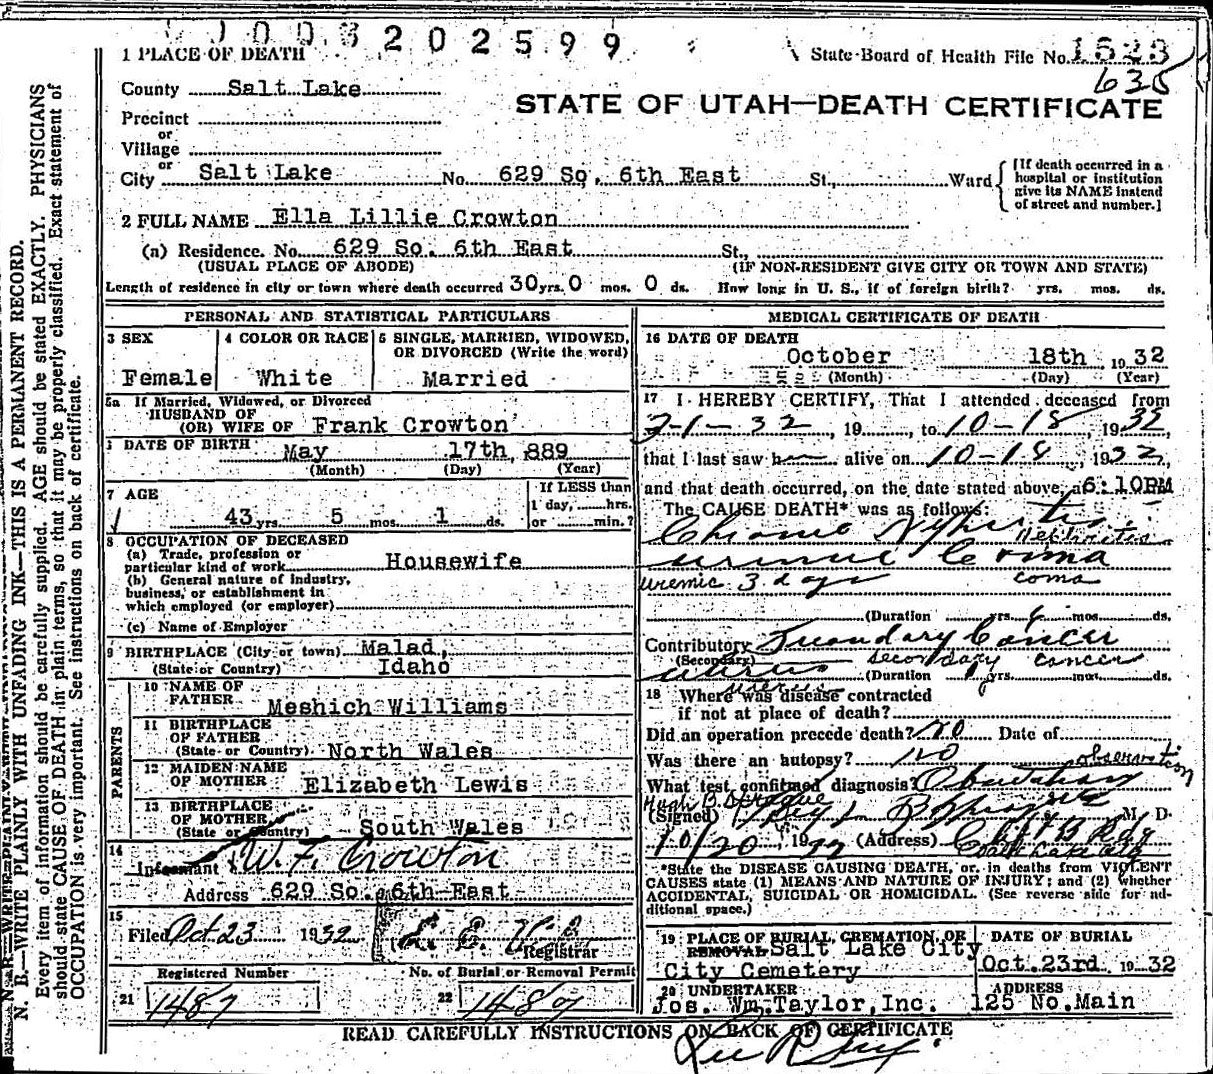 1003202599
1 PLACE OF DEATH
State Board of Health File No. 1523
635
County Salt Lake
STATE OF UTAH—DEATH CERTIFICATE
Precinct
or
Village
or
City Salt Lake No. 629 So. 6th East St., Ward
[If death occurred in a
hospital or institution
give its NAME instead
of street and number.]
2 FULL NAME Ella Lillie Crowton
(a) Residence. No. 629 So. 6th East St.,
(USUAL PLACE OF ABODE) (IF NON-RESIDENT GIVE CITY OR TOWN AND STATE)
Length of residence in city or town where death occurred 30 yrs. 0 mos. 0 ds. How long in U. S., if of foreign birth? yrs. mos. ds.
PERSONAL AND STATISTICAL PARTICULARS
3 SEX
Female
4 COLOR OR RACE
White
5 SINGLE, MARRIED, WIDOWED,
OR DIVORCED (Write the word)
Married
5a If Married, Widowed, or Divorced
HUSBAND OF
(OR) WIFE OF Frank Crowton
DATE OF BIRTH May 17th, 889
(Month) (Day) (Year)
7 AGE
43 yrs. 5 mos. 1 ds.
If LESS than
1 day, hrs.
or min.?
8 OCCUPATION OF DECEASED
(a) Trade, profession or
particular kind of work Housewife
(b) General nature of industry,
business, or establishment in
which employed (or employer)
(c) Name of Employer
9 BIRTHPLACE (City or town) Malad,
(State or Country) Idaho
PARENTS
10 NAME OF
FATHER Meshich Williams
11 BIRTHPLACE
OF FATHER
(State or Country) North Wales
12 MAIDEN NAME
OF MOTHER Elizabeth Lewis
13 BIRTHPLACE
OF MOTHER
(State or Country) South Wales
14
Informant W. F. Crowton
Address 629 So. 6th East
15
Filed Oct 23 1932
Registrar
Registered Number
21 1487
No. of Burial or Removal Permit
22 1487
MEDICAL CERTIFICATE OF DEATH
16 DATE OF DEATH
October 18th 1932
(Month) (Day) (Year)
17 I HEREBY CERTIFY, That I attended deceased from
7-1-32, 19, to 10-18, 1932,
that I last saw her alive on 10-18, 1932,
and that death occurred, on the date stated above, at 6:10PM
The CAUSE DEATH* was as follows:
Chronic Nephritis
Nephritis
uremic Coma
uremic 3 days coma
(Duration yrs. 6 mos. ds.
Contributory Secondary Cancer
(Secondary) secondary cancer
uterus (Duration 1 yrs. mos. ds.
uterus
18 Where was disease contracted
if not at place of death?
Did an operation precede death? no Date of
Was there an autopsy? no
observation
What test confirmed diagnosis? Observation
Hugh B. Sprague
(Signed) Hugh B Sprague M. D.
10/20, 1932 (Address)
*State the DISEASE CAUSING DEATH, or, in deaths from VIOLENT
CAUSES state (1) MEANS AND NATURE OF INJURY; and (2) whether
ACCIDENTAL, SUICIDAL OR HOMICIDAL. (See reverse side for ad-
ditional space.)
19 PLACE OF BURIAL, CREMATION, OR
REMOVAL Salt Lake City
City Cemetery
DATE OF BURIAL
Oct. 23rd, 1932
20 UNDERTAKER
Jos. Wm. Taylor, Inc.
ADDRESS
125 No. Main
READ CAREFULLY INSTRUCTIONS ON BACK OF CERTIFICATE
N. B.—WRITE PLAINLY WITH UNFADING INK—THIS IS A PERMANENT RECORD.
Every item of information should be carefully supplied. AGE should be stated EXACTLY. PHYSICIANS
should state CAUSE OF DEATH in plain terms, so that it may be properly classified. Exact statement of
OCCUPATION is very important. See instructions on back of certificate.